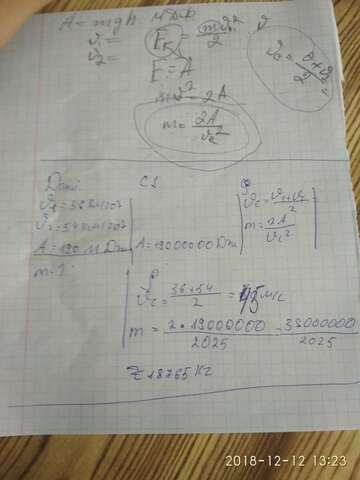 A = mgh мДж
υ₁ =
υ₂ =
Eₖ = mυc²/2
E = A
mυ² = 2A
m = 2A/υc²
Дані
υ₁ = 36 км/год
υ₂ = 54 км/год
A = 190 МДж
m - ?
СІ
A = 19000000 Дж
υc = υ₁+υ₂/2
m = 2A/υc²
υc = 36+54/2 = 45 м/с
m = 2·19000000/2025 = 38000000/2025
≈ 18765 кг
2018-12-12 13:23